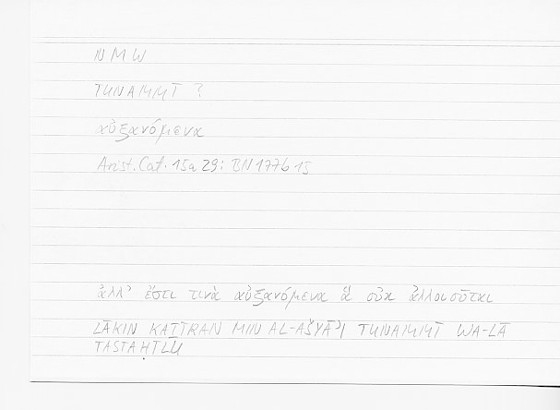 NMW
TUNAMMĪ ?
αὐξανόμενα
Arist. Cat. 15a 29; BN 177b 15
ἀλλ' ἔστι τινὰ αὐξανόμενα ἃ οὐκ ἀλλοιοῦται
LĀKIN KAṮĪRAN MIN AL-AŠYĀʾI TUNAMMĪ WA-LĀ
TASTAḤĪLU